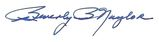 Beverly B Naylor